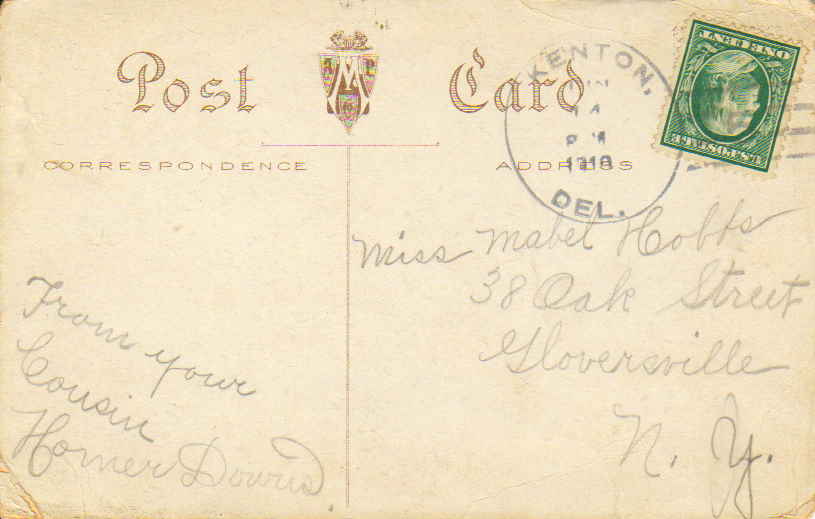 Post Card
CORRESPONDENCE
ADDRESS
KENTON,
14
1910
DEL.
U.S. POSTAGE
ONE CENT
Miss Mabel Hobbs
38 Oak Street
Gloversville
N. Y.
From your
Cousin
Homer Downs